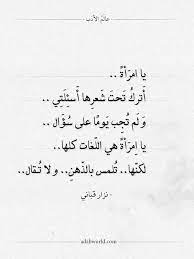 عالم الأدب
يا امرَأةً ..
أتركُ تَحتَ شَعرِها أسئِلَتِي ..
وَلم تُجِب يَومًا على سُؤال ..
يا إمرَأةً هي اللّغات كلها..
لكنّها.. تُلمس بالذّهنِ.. ولا تُقال..
- نزار قباني -
adabworld.com